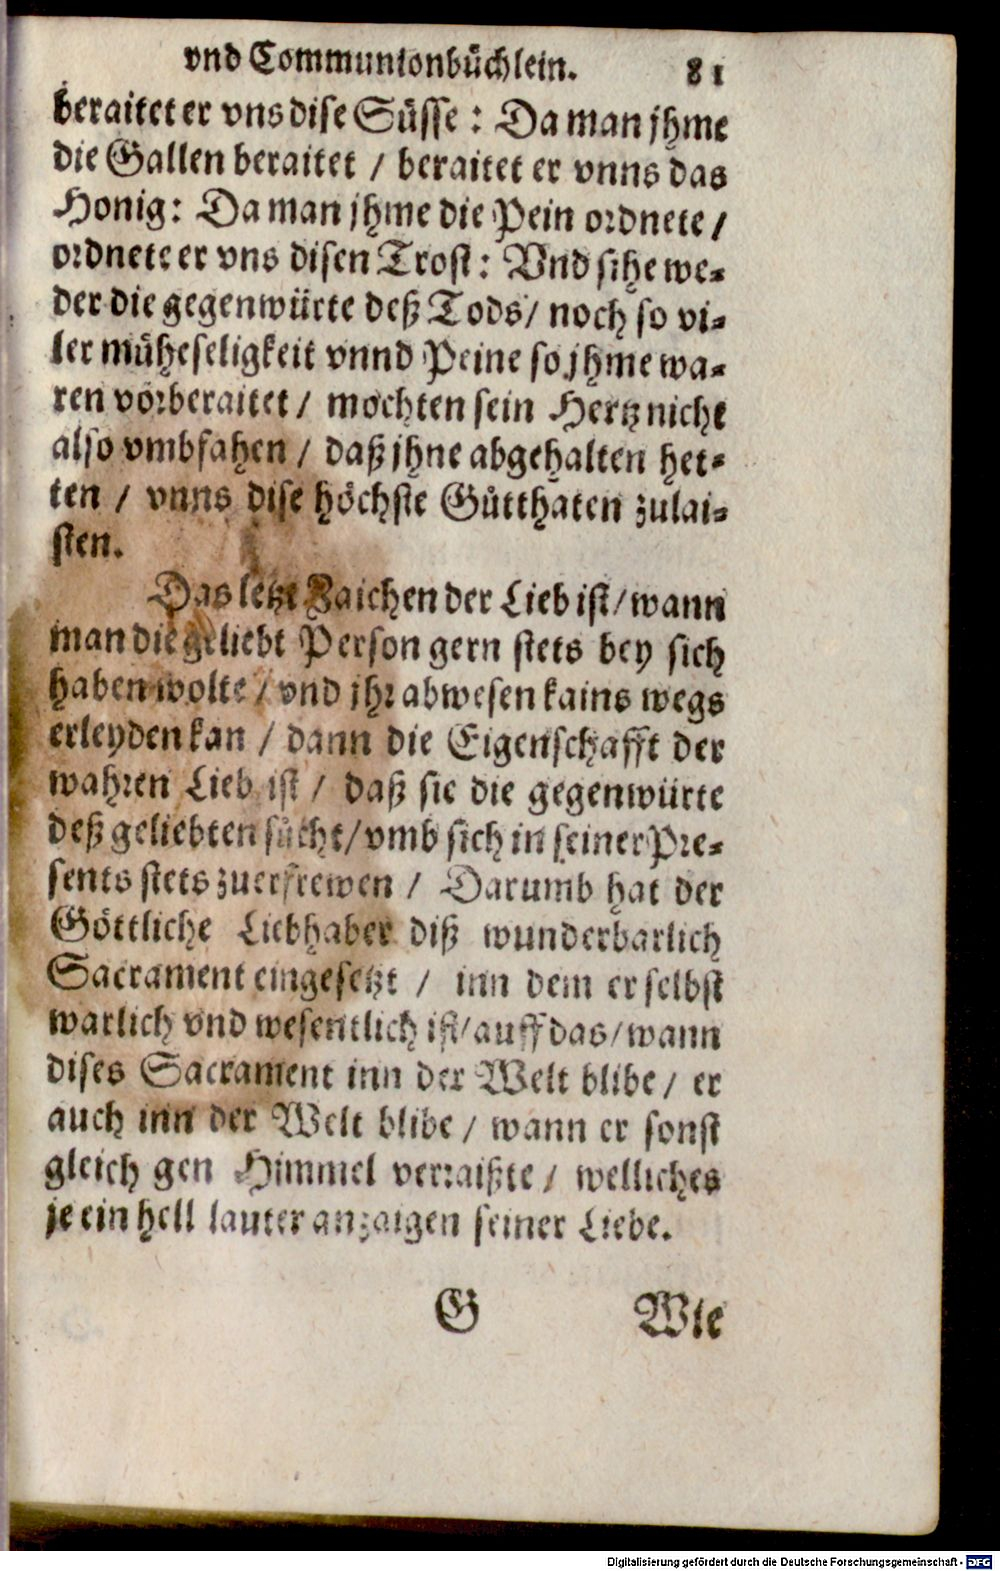 vnd Communionbüchlein. 81
beraitet er vns dise Süsse : Da man jhme
die Gallen beraitet / beraitet er vnns das
Honig: Da man jhme die Pein ordnete /
ordnete er vns disen Trost: Vnd sihe we-
der die gegenwürte deß Tods / noch so vi-
ler müheseligkeit vnnd Peine so jhme wa-
ren vorberaitet / mochten sein Hertz nicht
also vmbfahen / daß jhne abgehalten het-
ten / vnns dise höchste Gůtthaten zulai-
sten.
Das letzt Zaichen der Lieb ist / wann
man die geliebt Person gern stets bey sich
haben wolte / vnd jhr abwesen kains wegs
erleyden kan / dann die Eigenschafft der
wahren Lieb ist / daß sie die gegenwürte
deß geliebten sůcht / vmb sich in seiner Pre-
sents stets zuerfrewen / Darumb hat der
Göttliche Liebhaber diß wunderbarlich
Sacrament eingesetzt / inn dem er selbst
warlich vnd wesentlich ist / auff das / wann
dises Sacrament inn der Welt blibe / er
auch inn der Welt blibe / wann er sonst
gleich gen Himmel verraißte / welliches
je ein hell lauter anzaigen seiner Liebe.
G Wie
Digitalisierung gefördert durch die Deutsche Forschungsgemeinschaft - DFG